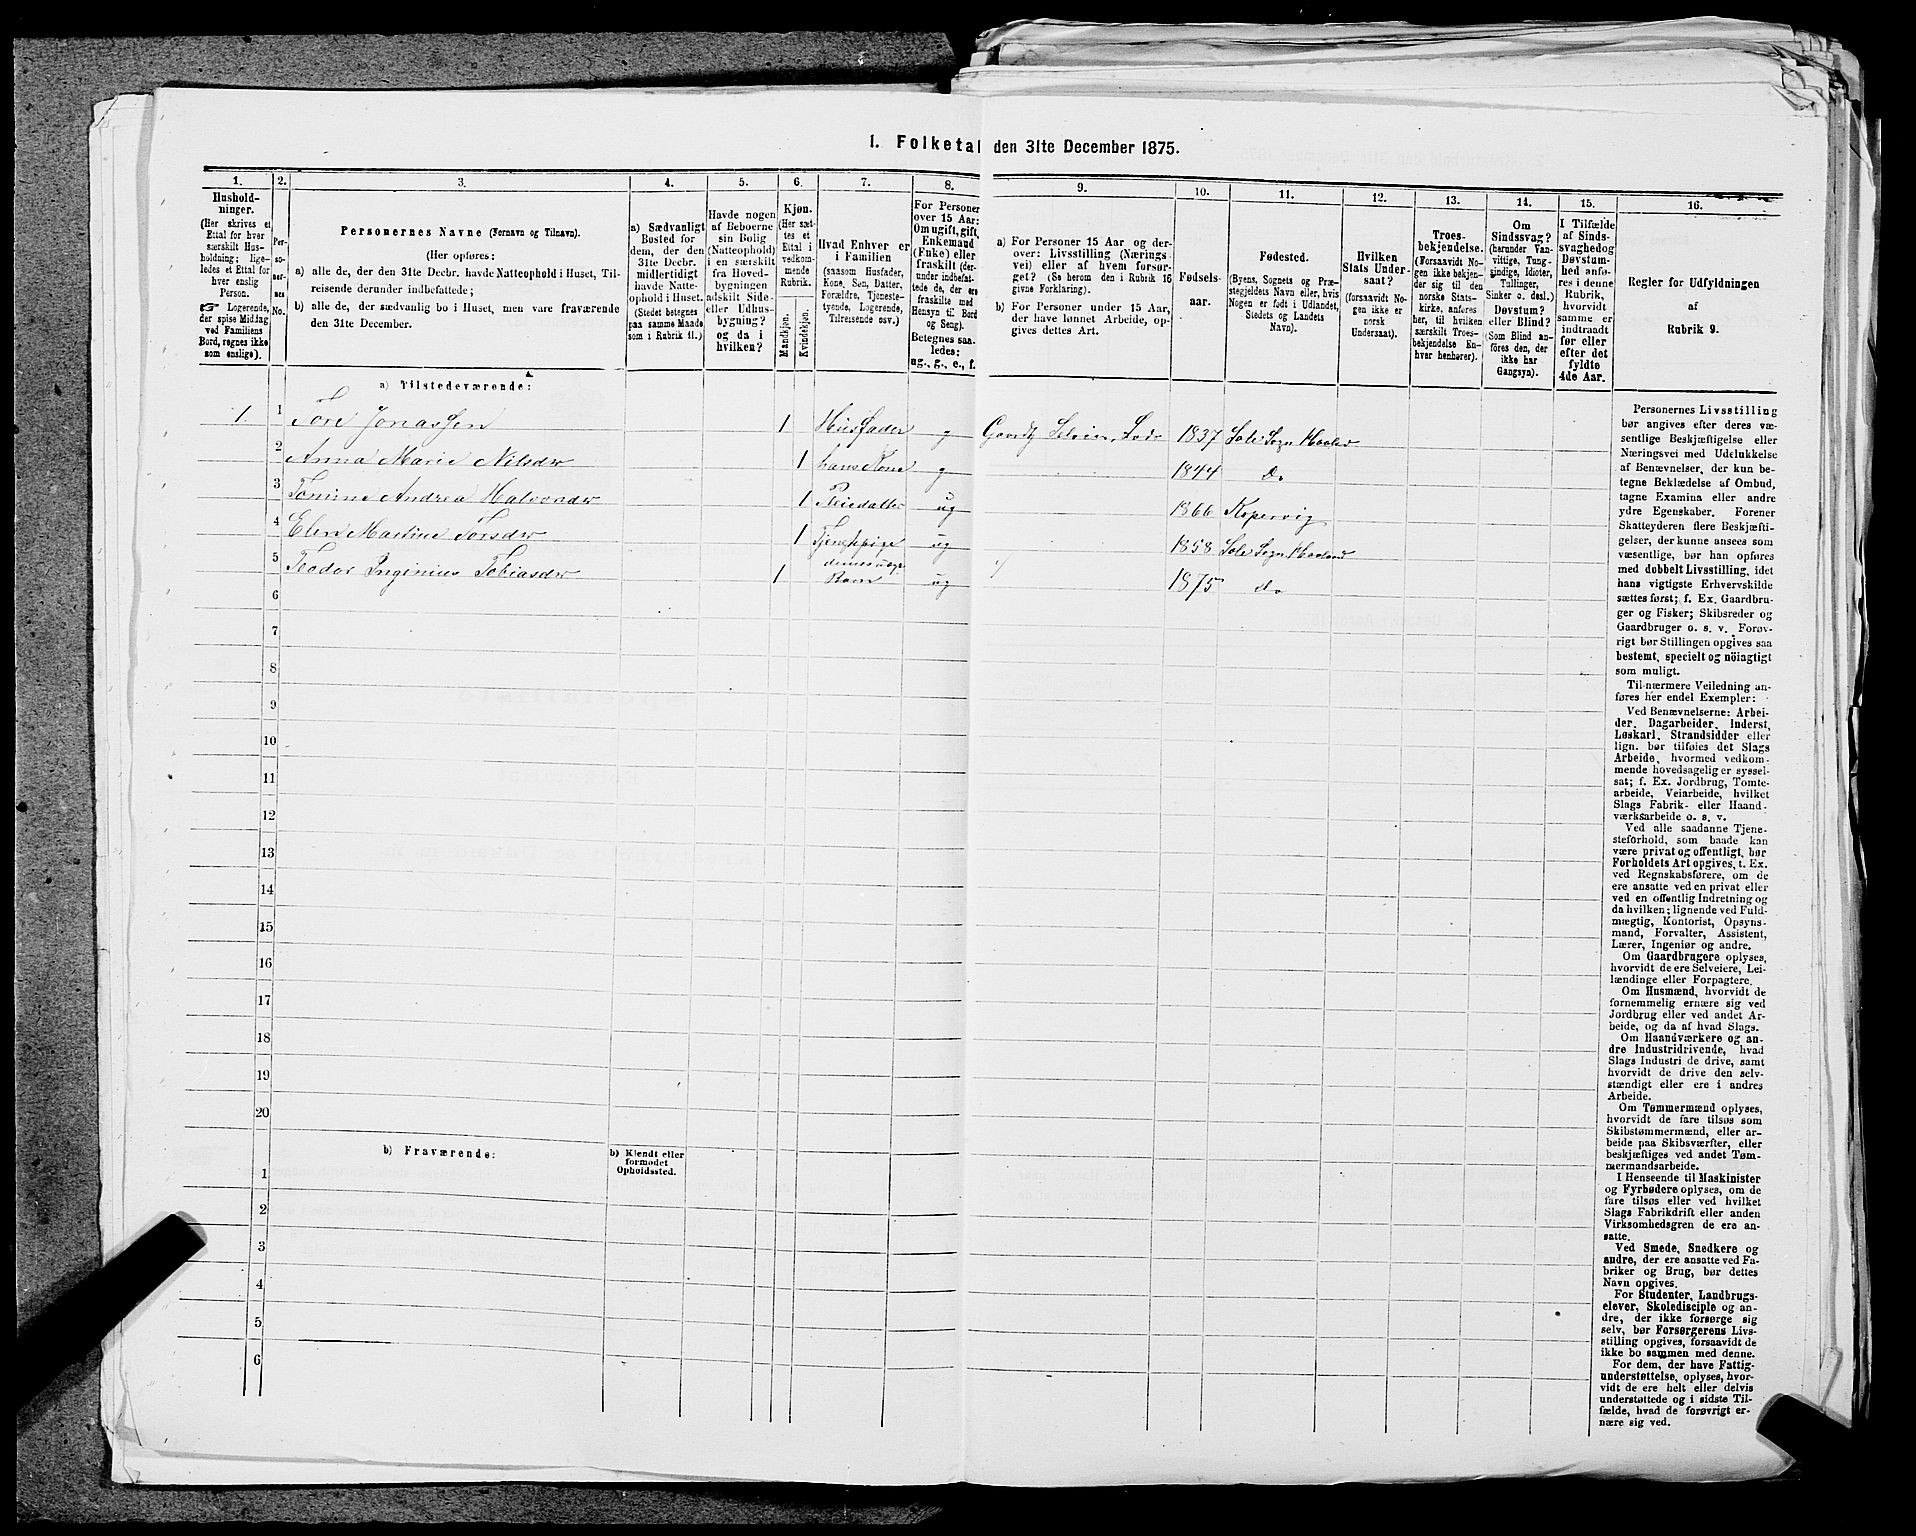 1. Folketal den 31te December 1875.
1.
2.
3.
4.
5.
6.
7.
8.
9.
10.
11.
12.
13.
14.
15.
16.
Hushold-
ninger.
(Her skrives et
Ettal for hver
særskilt Hus-
holdning; lige-
ledes et Ettal for
hver enslig
Person.
☞ Logerende,
der spise Middag
ved Familiens
Bord, regnes ikke
som enslige).
Per-
so-
ner-
nes
No.
Personernes Navne (Fornavn og Tilnavn).
(Her opføres:
a) alle de, der den 31te Decbr. havde Natteophold i Huset, Til-
reisende derunder indbefattede;
b) alle de, der sædvanlig bo i Huset, men vare fraværende
den 31te December.
a) Sædvanligt
Bosted for
dem, der den
31te Decbr.
midlertidigt
havde Natte-
ophold i Huset.
(Stedet betegnes
paa samme Maade
som i Rubrik 11.)
Havde nogen
af Beboerne
sin Bolig
(Natteophold)
i en særskilt
fra Hoved-
bygningen
adskilt Side-
eller Udhus-
bygning?
og da i
hvilken?
Kjøn.
(Her sæt-
tes et
Ettal i
vedkom-
mende
Rubrik.
Mandkjøn.
Kvindekjøn.
Hvad Enhver er
i Familien
(saasom Husfader,
Kone, Søn, Datter,
Forældre, Tjeneste-
tyende, Logerende,
Tilreisende osv.)
For Personer
over 15 Aar:
Om ugift, gift,
Enkemand
(Enke) eller
fraskilt (der-
under indbefat-
tede de, der ere
fraskilte med
Hensyn til Bord
og Seng).
Betegnes saa-
ledes:
ug., g., e., f.
a) For Personer 15 Aar og der-
over: Livsstilling (Nærings-
vei) eller af hvem forsør-
get? (Se herom den i Rubrik 16
givne Forklaring).
b) For Personer under 15 Aar,
der have lønnet Arbeide, op-
gives dettes Art.
Fødsels-
aar.
Fødested.
(Byens, Sognets og Præ-
stegjeldets Navn eller, hvis
Nogen er født i Udlandet,
Stedets og Landets
Navn).
Hvilken
Stats Under-
saat?
(forsaavidt No-
gen ikke er
norsk
Undersaat).
Troes-
bekjendelse.
(Forsaavidt No-
gen ikke bekjen-
der sig til den
norske Stats-
kirke, anføres
her, til hvilken
særskilt Troes-
bekjendelse En-
hver henhører).
Om
Sindssvag?
(herunder Van-
vittige, Tung-
sindige, Idioter,
Tullinger,
Sinker o. desl.)
Døvstum?
eller Blind?
(Som Blind an-
føres den, der
ikke har
Gangsyn).
I Tilfælde
af Sinds-
svaghed og
Døvstum-
hed anfø-
res i denne
Rubrik,
hvorvidt
samme er
indtraadt
før eller
efter det
fyldte
4de Aar.
Regler for Udfyldningen
af
Rubrik 9.
a) Tilstedeværende:
1. 1 Tore Jonassen 1 Husfader g Gaardb Selveier 1837 Sole Sogn Haaland
2 Anna Marie Nilsdtr 1 hans Kone g 1844 do
3 Tomine Andrea Halvorsdtr 1 Pleiedatter ug 1866 Kopervig
4 Elen Martine Torsdtr 1 Tjenestepige ug 1858 Sole Sogn Haaland
5 Teodor Inginius Tobiasdtr 1 dennes uægte Barn ug 1875 do
6
7
8
9
10
11
12
13
14
15
16
17
18
19
20
b) Fraværende:
b) Kjendt eller
formodet
Opholdssted.
1
2
3
4
5
6
Personernes Livsstilling
bør angives efter deres væ-
sentlige Beskjæftigelse eller
Næringsvei med Udelukkelse
af Benævnelser, der kun be-
tegne Beklædelse af Ombud,
tagne Examina eller andre
ydre Egenskaber. Forener
Skatteyderen flere Beskjæfti-
gelser, der kunne ansees som
væsentlige, bør han opføres
med dobbelt Livsstilling, idet
hans vigtigste Erhvervskilde
sættes først; f. Ex. Gaardbru-
ger og Fisker; Skibsreder og
Gaardbruger o. s. v. Forøv-
rigt bør Stillingen opgives saa
bestemt, specielt og nöiagtigt
som muligt.
Til nærmere Veiledning an-
føres her endel Exempler:
Ved Benævnelserne: Arbei-
der, Dagarbeider, Inderst,
Løskarl, Strandsidder eller
lign. bør tilføies det Slags
Arbeide, hvormed vedkom-
mende hovedsagelig er syssel-
sat; f. Ex. Jordbrug, Tomte-
arbeide, Veiarbeide, hvilket
Slags Fabrik- eller Haand-
værksarbeide o. s. v.
Ved alle saadanne Tjene-
steforhold, som baade kan
være privat og offentligt, bør
Forholdets Art opgives, t. Ex.
ved Regnskabsførere, om de
ere ansatte ved en privat eller
ved en offentlig Indretning og
da hvilken; lignende ved Fuld-
mægtig, Kontorist, Opsyns-
mand, Forvalter, Assistent,
Lærer, Ingeniør og andre.
Om Gaardbrugere oplyses,
hvorvidt de ere Selveiere, Lei-
lændinge eller Forpagtere.
Om Husmænd, hvorvidt de
fornemmelig ernære sig ved
Jordbrug eller ved andet Ar-
beide, og da af hvad Slags.
Om Haandværkere og an-
dre Industridrivende, hvad
Slags Industri de drive, samt
hvorvidt de drive den selv-
stændigt eller ere i andres
Arbeide.
Om Tømmermænd oplyses,
hvorvidt de fare tilsøs som
Skibstømmermænd, eller ar-
beide paa Skibsværfter, eller
beskjæftiges ved andet Tøm-
mermandsarbeide.
I Henseende til Maskinister
og Fyrbødere oplyses, om de
fare tilsøs eller ved hvilket
Slags Fabrikdrift eller anden
Virksomhedsgren de ere an-
satte.
Ved Smede, Snedkere og
andre, der ere ansatte ved Fa-
briker og Brug, bør dettes
Navn opgives.
For Studenter, Landbrugs-
elever, Skoledisciple og an-
dre, der ikke forsørge sig
selv, bør Forsørgerens Livs-
stilling opgives, forsaavidt de
ikke bo sammen med denne.
For dem, der have Fattig-
understøttelse, oplyses, hvor-
vidt de ere helt eller delvis
understøttede og i sidste Til-
fælde, hvad de forøvrigt er-
nære sig ved.